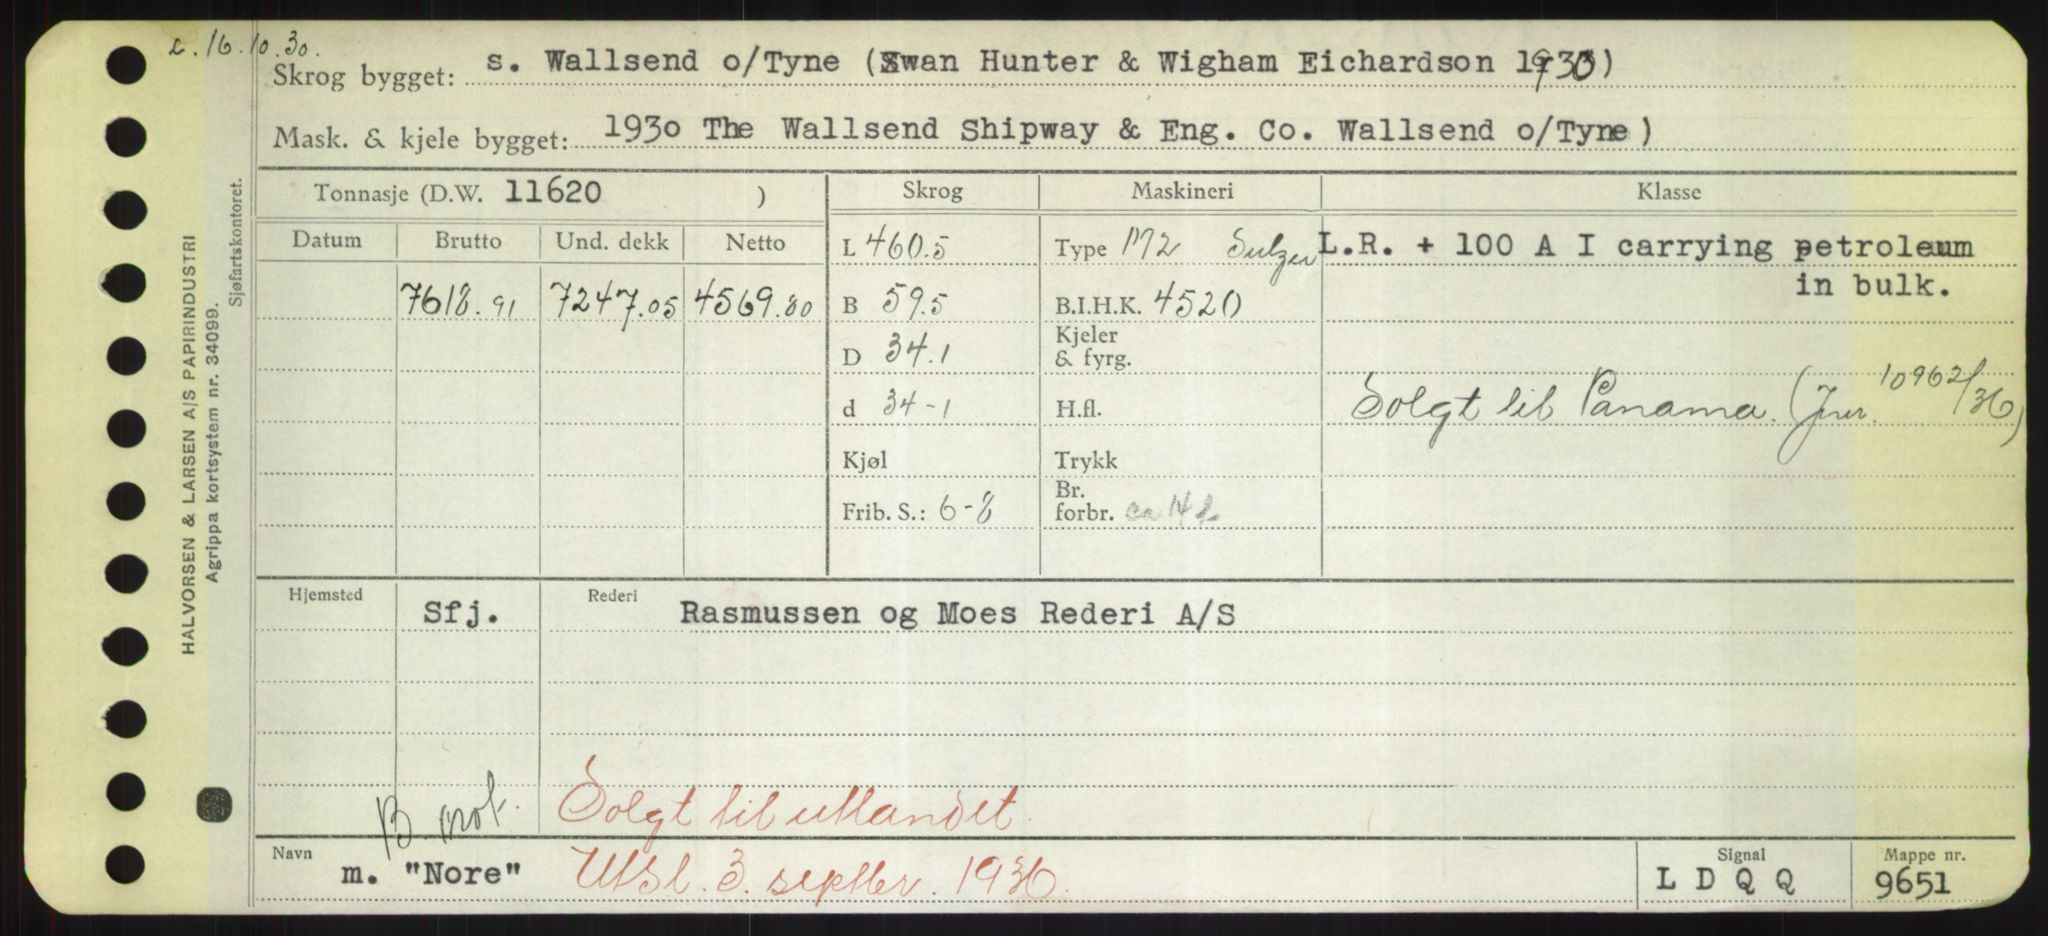 c. 16.10.30.
Skrog bygget: s. Wallsend o/Tyne (Swan Hunter & Wigham Eichardson 1930)
Mask. & kjele bygget: 1930 The Wallsend Shipway & Eng. Co. Wallsend o/Tyne)
Tonnasje (D.W. 11620 ) Skrog Maskineri Klasse
Datum Brutto Und. dekk Netto L 460.5 Type M2 Sulzer L.R. + 100 A I carrying petroleum
in bulk.
7618.91 7247.05 4569.80 B 59.5 B.I.H.K. 4520
D 34.1 Kjeler
& fyrg.
d 34-1 H.fl. Solgt til Panama. (Jnr. 10962/36)
Kjøl Trykk
Frib. S.: 6-8 Br.
forbr. ca 14 t
Hjemsted Sfj. Rederi Rasmussen og Moes Rederi A/S
B. not. Solgt til utlandet
Navn m. "Nore" Utsl. 3. septbr. 1936. Signal L D Q Q Mappe nr. 9651
HALVORSEN & LARSEN A/S PAPIRINDUSTRI
Agrippa kortsystem nr. 34099.
Sjøfartskontoret.